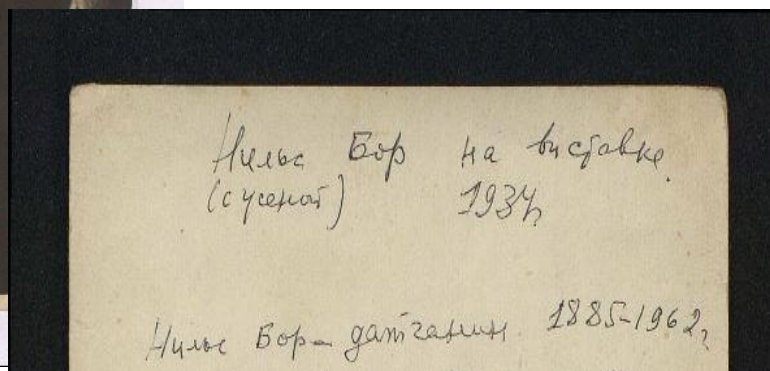 Нильс Бор на выставке.
(с женой) 1934г.
Нильс Бор – датчанин 1885-1962г.